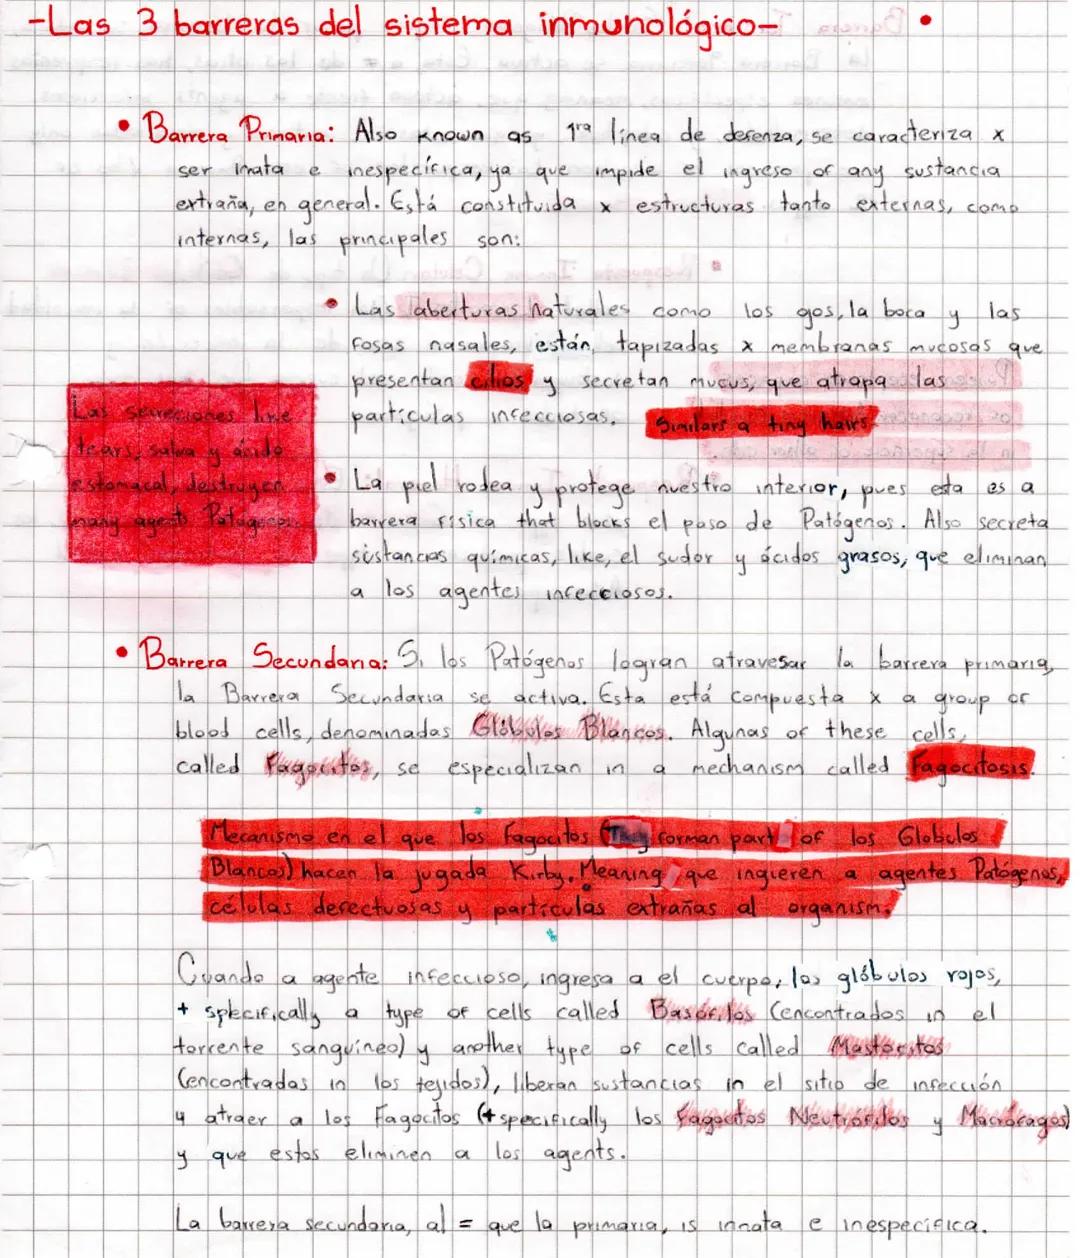 -Las 3 barreras del sistema inmunológico-
• Barrera Primaria: Also known as 1ra línea de defenza, se caracteriza x
ser inata e inespecífica, ya que impide el ingreso of any sustancia
extraña, en general. Está constituida x estructuras tanto externas, como
internas, las principales son:
• Las aberturas naturales como los gos, la boca y las
fosas nasales, están tapizadas x membranas mucosas que
presentan cilios y secretan mucus, que atrapa las
partículas infecciosas. Similars a tiny hairs.
Las secreciones like
tears, saliva y ácido
estomacal, destruyen
many agents Patógenos.
• La piel rodea y protege nuestro interior, pues esta es a
barrera física that blocks el paso de Patógenos. Also secreta
sustancias químicas, like, el sudor y ácidos grasos, que eliminan
a los agentes infecciosos.
• Barrera Secundaria: Si los Patógenos logran atravesar la barrera primaria,
la Barrera Secundaria se activa. Esta está compuesta x a group of
blood cells, denominadas Glóbulos Blancos. Algunas of these cells,
called Fagocitos, se especializan in a mechanism called Fagocitosis.
Mecanismo en el que los fagocitos (They forman part of los Globulos
Blancos) hacen la jugada Kirby. Meaning que ingieren a agentes Patógenos,
células defectuosas y partículas extrañas al organism.
Cuando a agente infeccioso, ingresa a el cuerpo, los glóbulos rojos,
+ specifically a type of cells called Basófilos (encontrados in el
torrente sanguíneo) y another type of cells called Mastocitos
(encontradas in los tejidos), liberan sustancias in el sitio de infección
y atraer a los Fagocitos (+ specifically los Fagocitos Neutrófilos y Macrófagos)
y que estos eliminen a los agents.
La barrera secundaria, al = que la primaria, is innata e inespecífica.